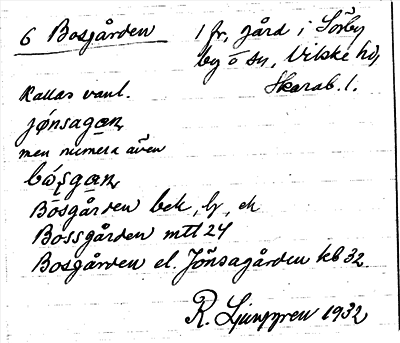 6 Bosgården 1 fr, gård i Sörby
by o sn, Vilske hd,
Skarab. l.
Kallas vanl.
jónsagan
men numera även
bósgan
Bosgården bek, lj, ek
Bossgården mtl 24
Bosgården el. Jönsagården kb 32
R. Ljunggren 1932